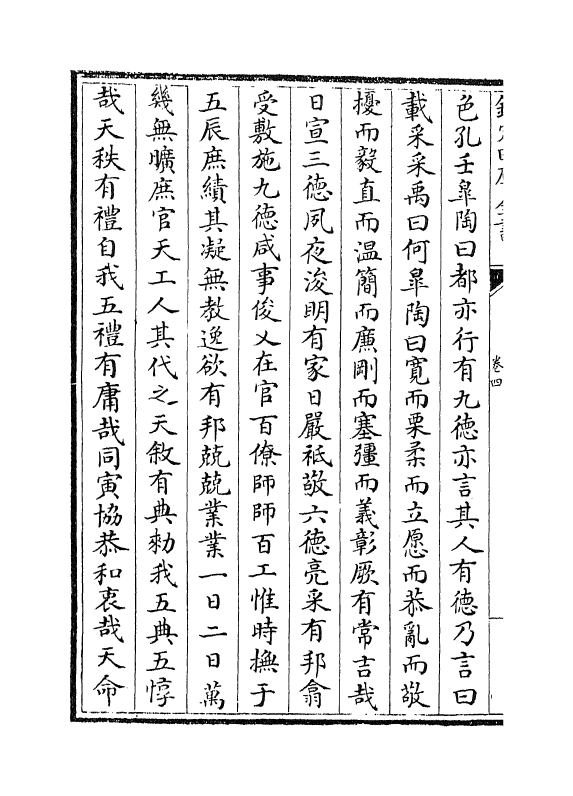 卷四
色孔壬皐陶曰都亦行有九德亦言其人有德乃言曰
載采采禹曰何皐陶曰寛而栗柔而立愿而恭亂而敬
擾而毅直而温簡而廉剛而塞彊而義彰厥有常吉哉
日宣三德夙夜浚明有家日嚴祗敬六德亮采有邦翕
受敷施九德咸事俊乂在官百僚師師百工惟時撫于
五辰庶績其凝無教逸欲有邦兢兢業業一日二日萬
幾無曠庶官天工人其代之天敘有典勑我五典五惇
哉天秩有禮自我五禮有庸哉同寅協恭和衷哉天命